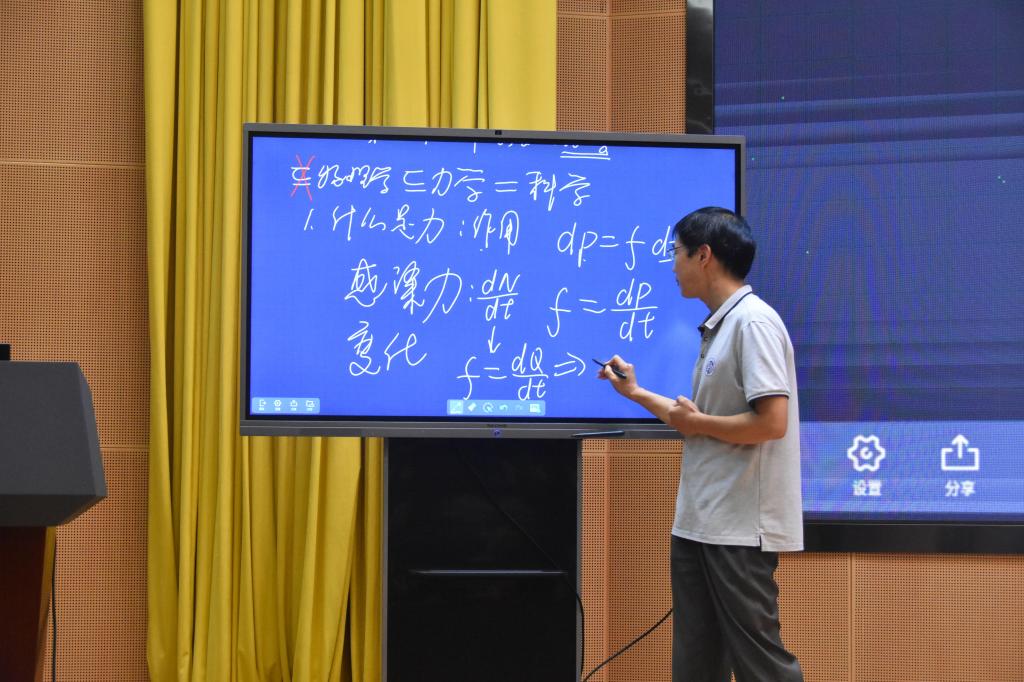 物理学 ⊆ 力学 = 科学
1. 什么是力 : 作用 dp = f d
感染力 : dN/dt f = dP/dt
变化 ↓ f = dQ/dt ⇒
设置 分享